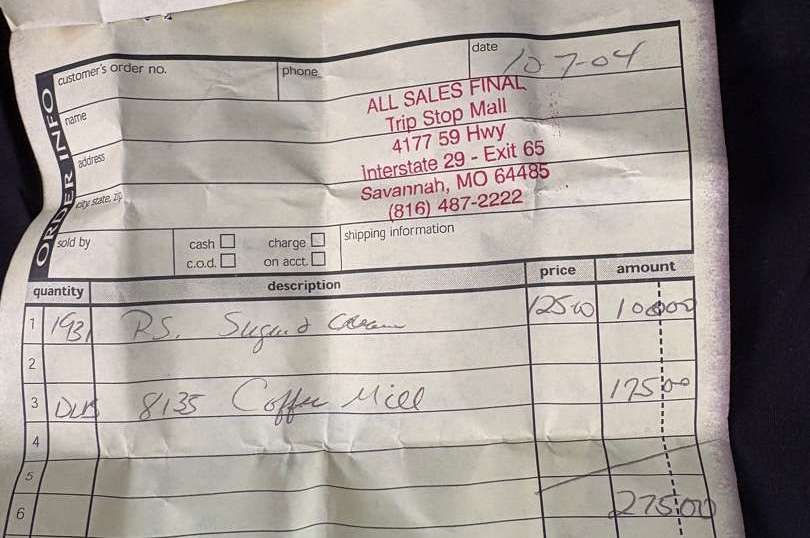 date
10-7-04
customer's order no.
phone
ALL SALES FINAL
Trip Stop Mall
4177 59 Hwy
Interstate 29 - Exit 65
Savannah, MO 64485
(816) 487-2222
ORDER INFO
name
address
city, state, zip
sold by
cash
charge
c.o.d.
on acct.
shipping information
quantity description price amount
1 1931 R.S. Sugar & Cream 125 00 100 00
2
3 8135 Coffee Mill 175 00
4
5
6 275 00